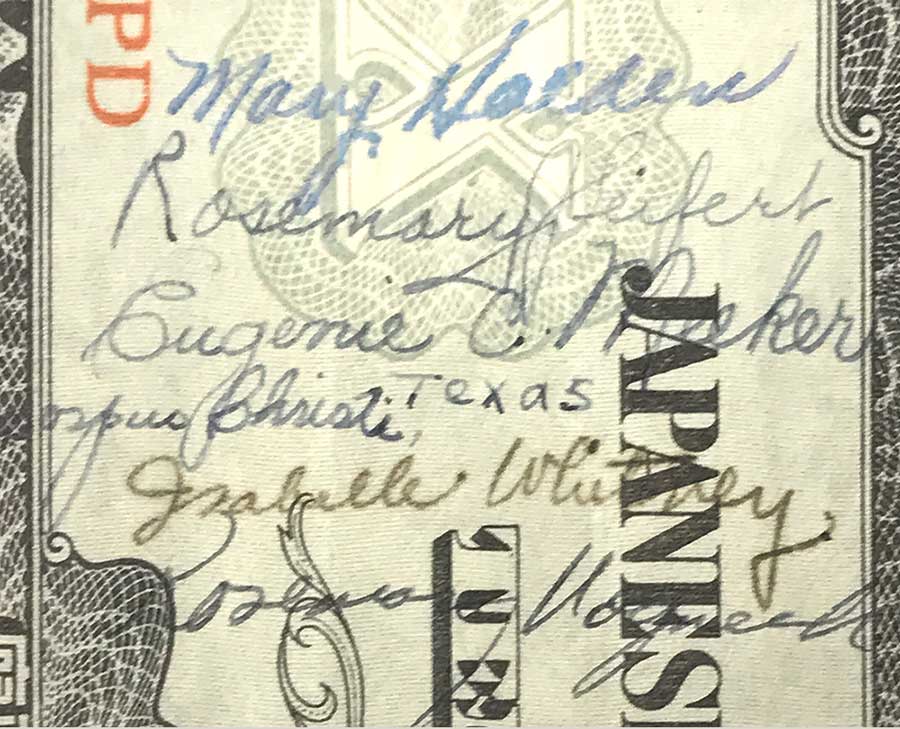 PD
Mary Holden
Rosemary Seifert
Eugenie C. Meeker
Corpus Christi, Texas
Isabelle Whitney
JAPANES